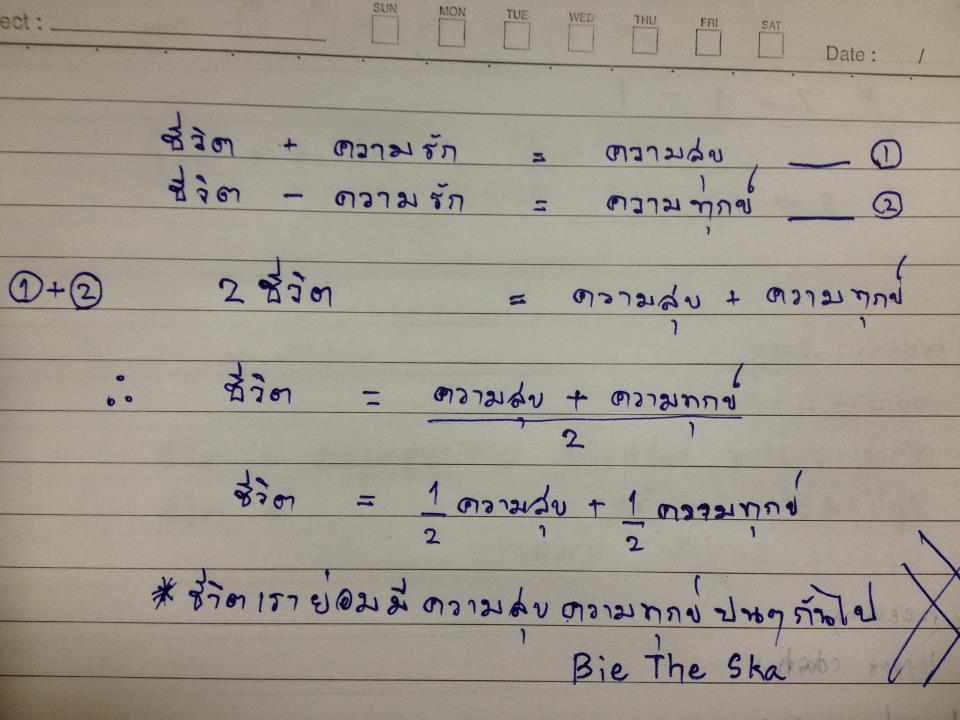 ect :
SUN MON TUE WED THU FRI SAT
Date : /
ชีวิต + ความรัก = ความสุข ①
ชีวิต - ความรัก = ความทุกข์ ②
①+② 2 ชีวิต = ความสุข + ความทุกข์
∴ ชีวิต = ความสุข + ความทุกข์
2
ชีวิต = 1/2 ความสุข + 1/2 ความทุกข์
* ชีวิตเราย่อมมีความสุข ความทุกข์ ปนๆกันไป
Bie The Ska